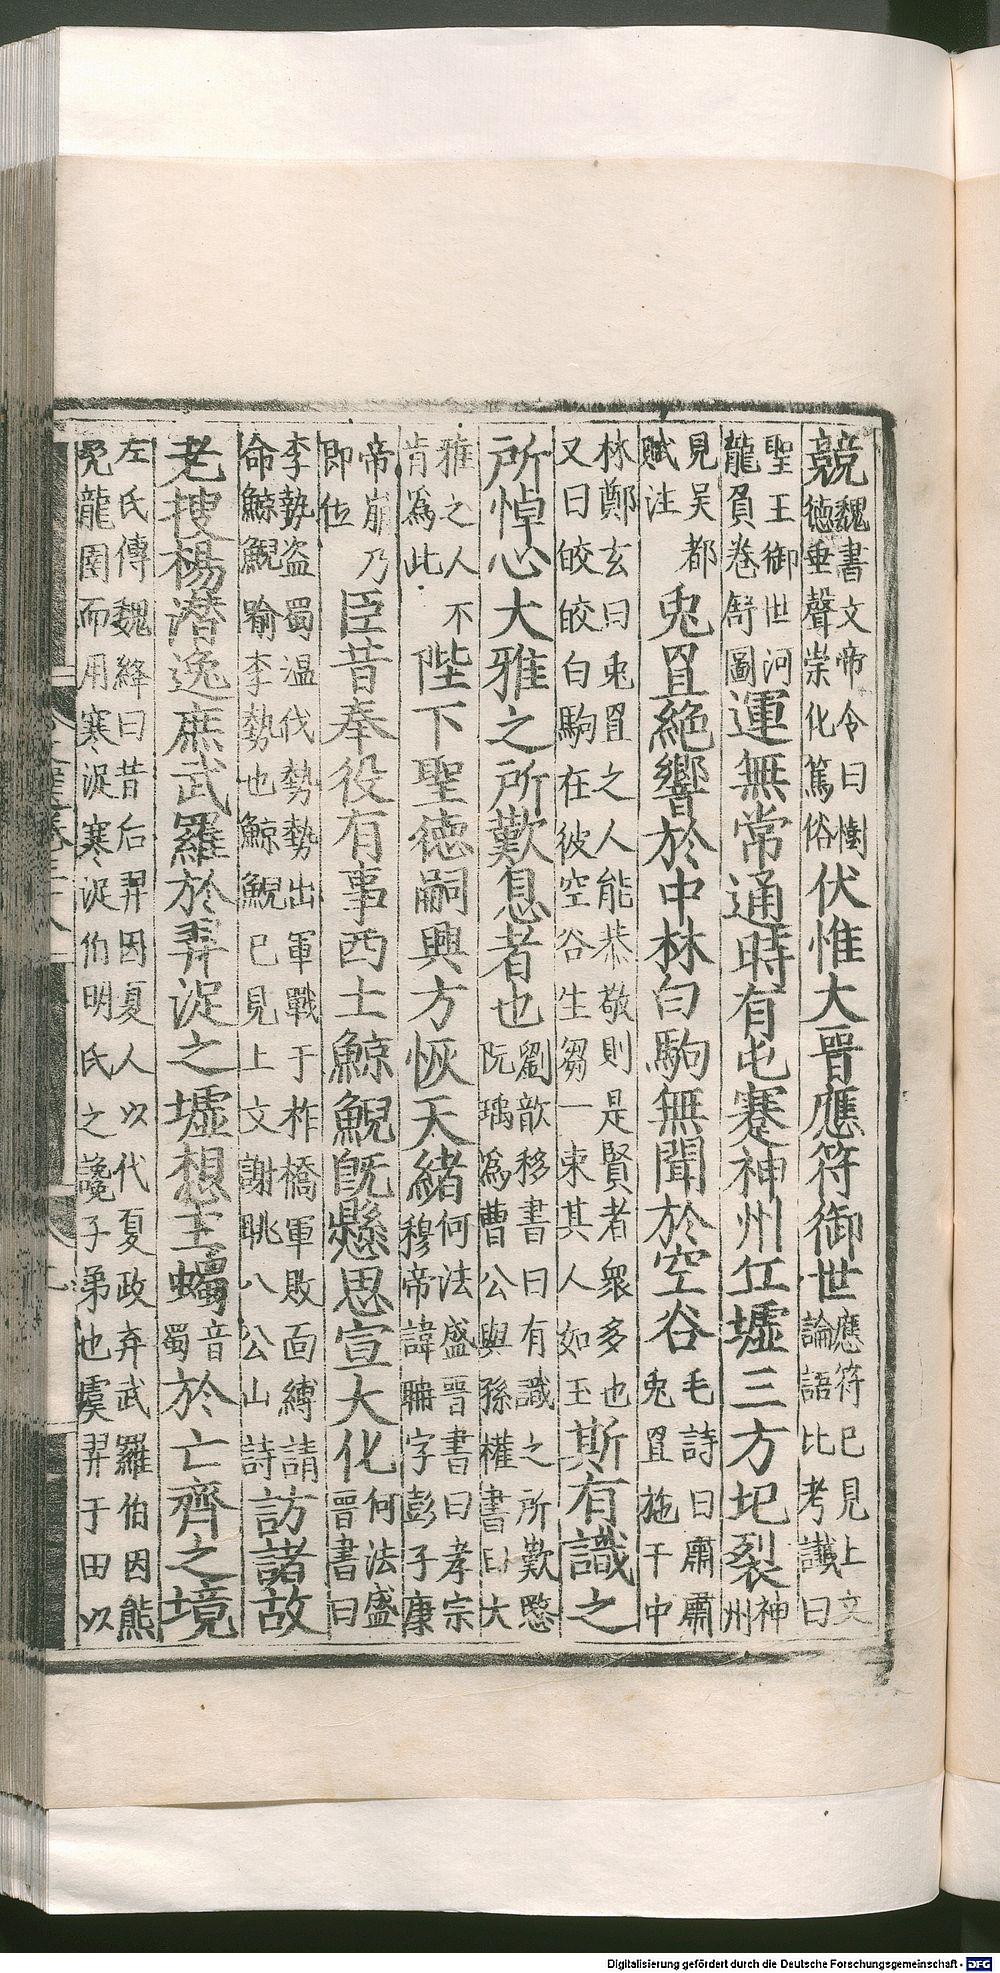 競魏書文帝令曰樹德垂聲崇化篤俗伏惟大晉應符御世應符已見上文論語比考讖曰
聖王御世河龍負卷舒圖運無常通時有屯蹇神州丘墟三方圮裂神州
見吳都賦注兎罝絶響於中林白駒無聞於空谷毛詩曰肅肅兎罝施于中
林鄭玄曰兎罝之人能恭敬則是賢者衆多也又曰皎皎白駒在彼空谷生芻一束其人如玉斯有識之
所悼心大雅之所歎息者也劉歆移書曰有識之所歎愍阮瑀爲曹公與孫權書曰大
雅之人不肯爲此陛下聖德嗣興方恢天緒何法盛晉書曰孝宗穆帝諱聃字彭子康
帝崩乃即位臣昔奉役有事西土鯨鯢旣懸思宣大化何法盛晉書曰
李勢盜蜀温伐勢勢出軍戰于柞橋軍敗面縛請命鯨鯢喻李勢也鯨鯢已見上文謝眺八公山詩訪諸故
老搜楊潛逸庶武羅於羿浞之墟想王蠋音蜀於亡齊之境
左氏傳魏絳曰昔后羿因夏人以代夏政弃武羅伯因熊龍圉而用寒浞寒浞伯明氏之讒子弟也虞羿于田以
Digitalisierung gefördert durch die Deutsche Forschungsgemeinschaft - DFG